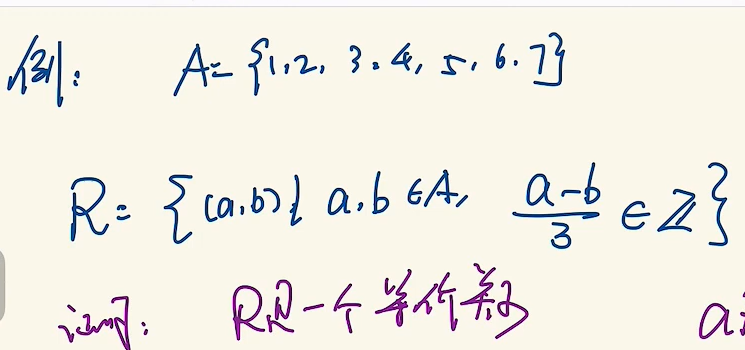 例：A={1,2,3.4,5,6.7}
R={(a,b)| a.b∈A, \frac{a-b}{3}∈ℤ}
证明：R是一个等价关系 a